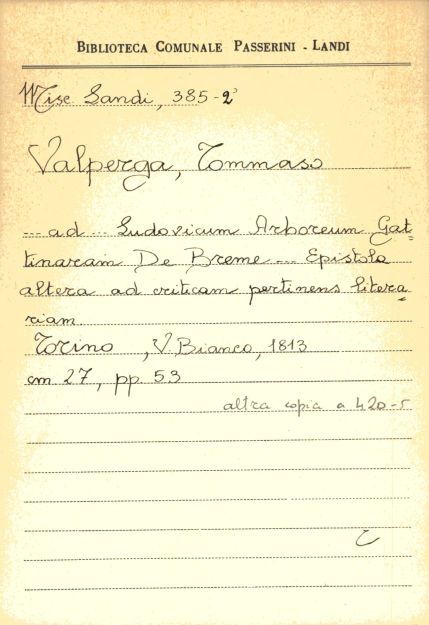 BIBLIOTECA COMUNALE PASSERINI - LANDI
Misc Landi, 385-2°
Valperga, Tommaso
... ad ... Ludovicum Arboreum Gat=
tinaram De Breme ... Epistola
altera ad criticam pertinens litera=
riam
Torino, V. Bianco, 1813
cm 27, pp. 53
altra copia a 420-5
C